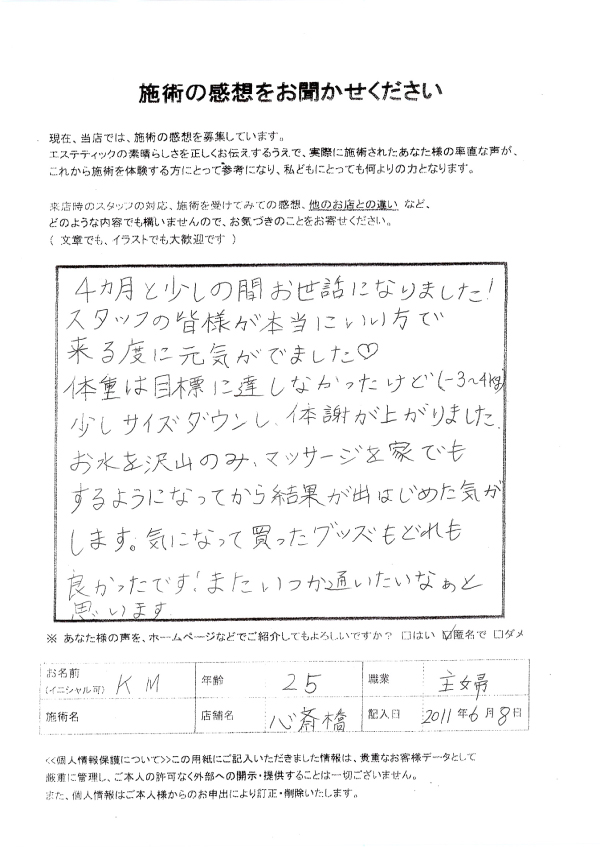 施術の感想をお聞かせください
現在、当店では、施術の感想を募集しています。
エステティックの素晴らしさを正しくお伝えするうえで、実際に施術されたあなた様の率直な声が、
これから施術を体験する方にとって参考になり、私どもにとっても何よりの力となります。
来店時のスタッフの対応、施術を受けてみての感想、他のお店との違い など、
どのような内容でも構いませんので、お気づきのことをお寄せください。
( 文章でも、イラストでも大歓迎です )
4カ月と少しの間お世話になりました!
スタッフの皆様が本当にいい方で
来る度に元気がでました♡
体重は目標に達しなかったけど(-3~4kg)
少しサイズダウンし、体謝が上がりました。
お水を沢山のみ、マッサージを家でも
するようになってから結果が出はじめた気が
します。気になって買ったグッズもどれも
良かったです!またいつか通いたいなぁと
思います
※ あなた様の声を、ホームページなどでご紹介してもよろしいですか? □はい ☑匿名で □ダメ
お名前 (イニシャル可) KM 年齢 25 職業 主婦
施術名 店舗名 心斎橋 記入日 2011年6月8日
<<個人情報保護について>>この用紙にご記入いただきました情報は、貴重なお客様データとして
厳重に管理し、ご本人の許可なく外部への開示・提供することは一切ございません。
また、個人情報はご本人様からのお申出により訂正・削除いたします。